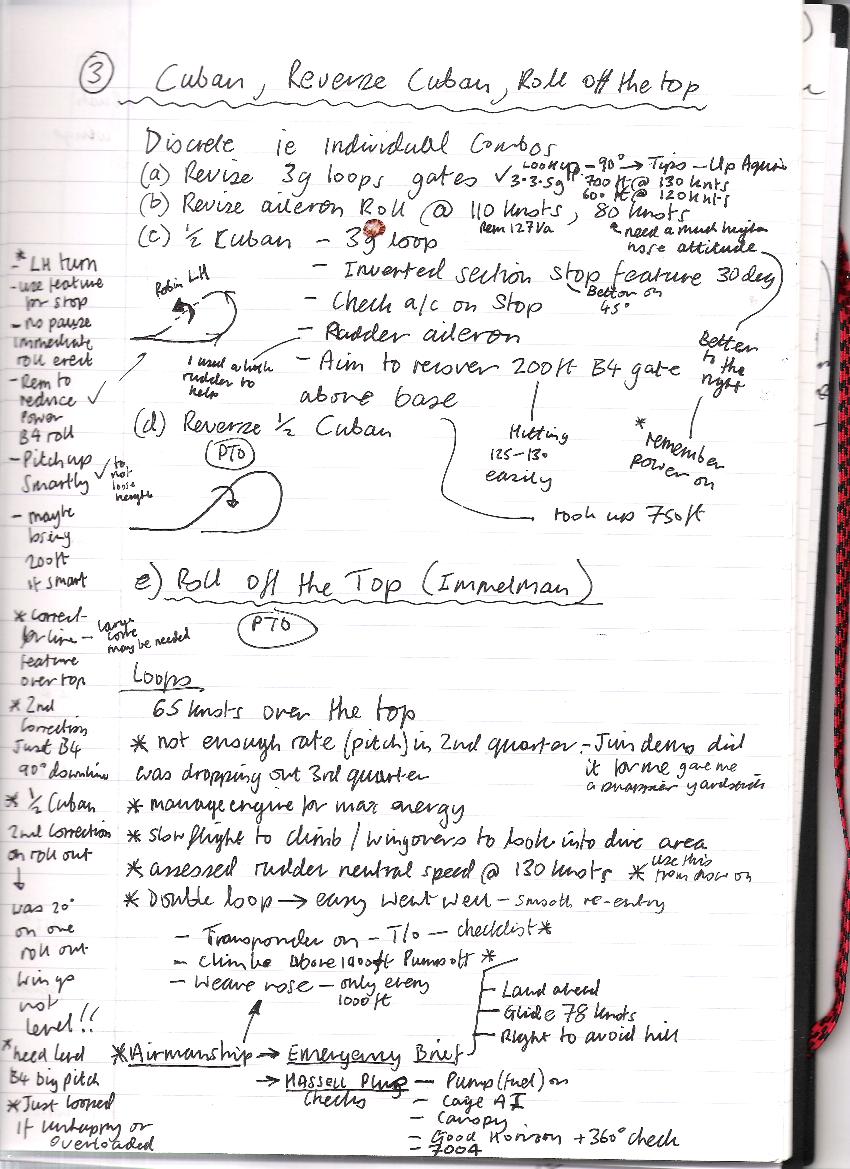 3 Cuban, Reverse Cuban, Roll off the top
Discrete ie Individual Combos
(a) Revise 3g loops gates ✓ 3-3.5g
Look up - 90° → Tips - Up Again
700 ft @ 130 knts
600 ft @ 120 knts
(b) Revise aileron Roll @ 110 knots, 80 knots
Rem 127 Va
* need a much higher
nose attitude
(c) ½ Cuban - 3g loop
- Inverted section stop feature 30 deg
Better on
45°
- Check a/c on stop
- Rudder aileron
- Aim to recover 200ft B4 gate
above base
Robin LH
I used a
rudder to
help
Better
to the
right
* remember
power on
Hitting
125-130
easily
(d) Reverse ½ Cuban
PTO
took up 750ft
e) Roll off the Top (Immelman)
PTO
Loops
65 knots over the top
* not enough rate (pitch) in 2nd quarter - Jim demo did
it for me gave me
a snappier yardstick
was dropping out 3rd quarter
* manage engine for max energy
* slow flight to climb / wingovers to look into dive area
* assessed rudder neutral speed @ 130 knots * use this
from now on
* Double loop → easy went well - smooth re-entry
- Transponder on - T/O - checklist *
- Climb Above 1000ft Pump off *
- Weave nose - only every
1000 ft
- Land ahead
- Glide 78 knots
- Right to avoid hill
* Airmanship → Emergency Brief
→ HASSELL Plus
Checks
- Pump (fuel) on
- Cage AI
- Canopy
- Good Horizon + 360° check
- 7004
* LH turn
- use feature
for stop
- no pause
immediate
roll erect
- Rem to
reduce ✓
power
B4 roll
- Pitch up
smartly ✓ to
not
lose
height
- maybe
losing
200ft
if smart
* correct
for line - large
corr
may be needed
feature
over top
* 2nd
correction
Just B4
90° downline
* ½ Cuban
2nd correction
on roll out
↓
was 20°
on one
roll out
wings
not
level!!
* need level
B4 big pitch
* Just looped
if unhappy or
overloaded